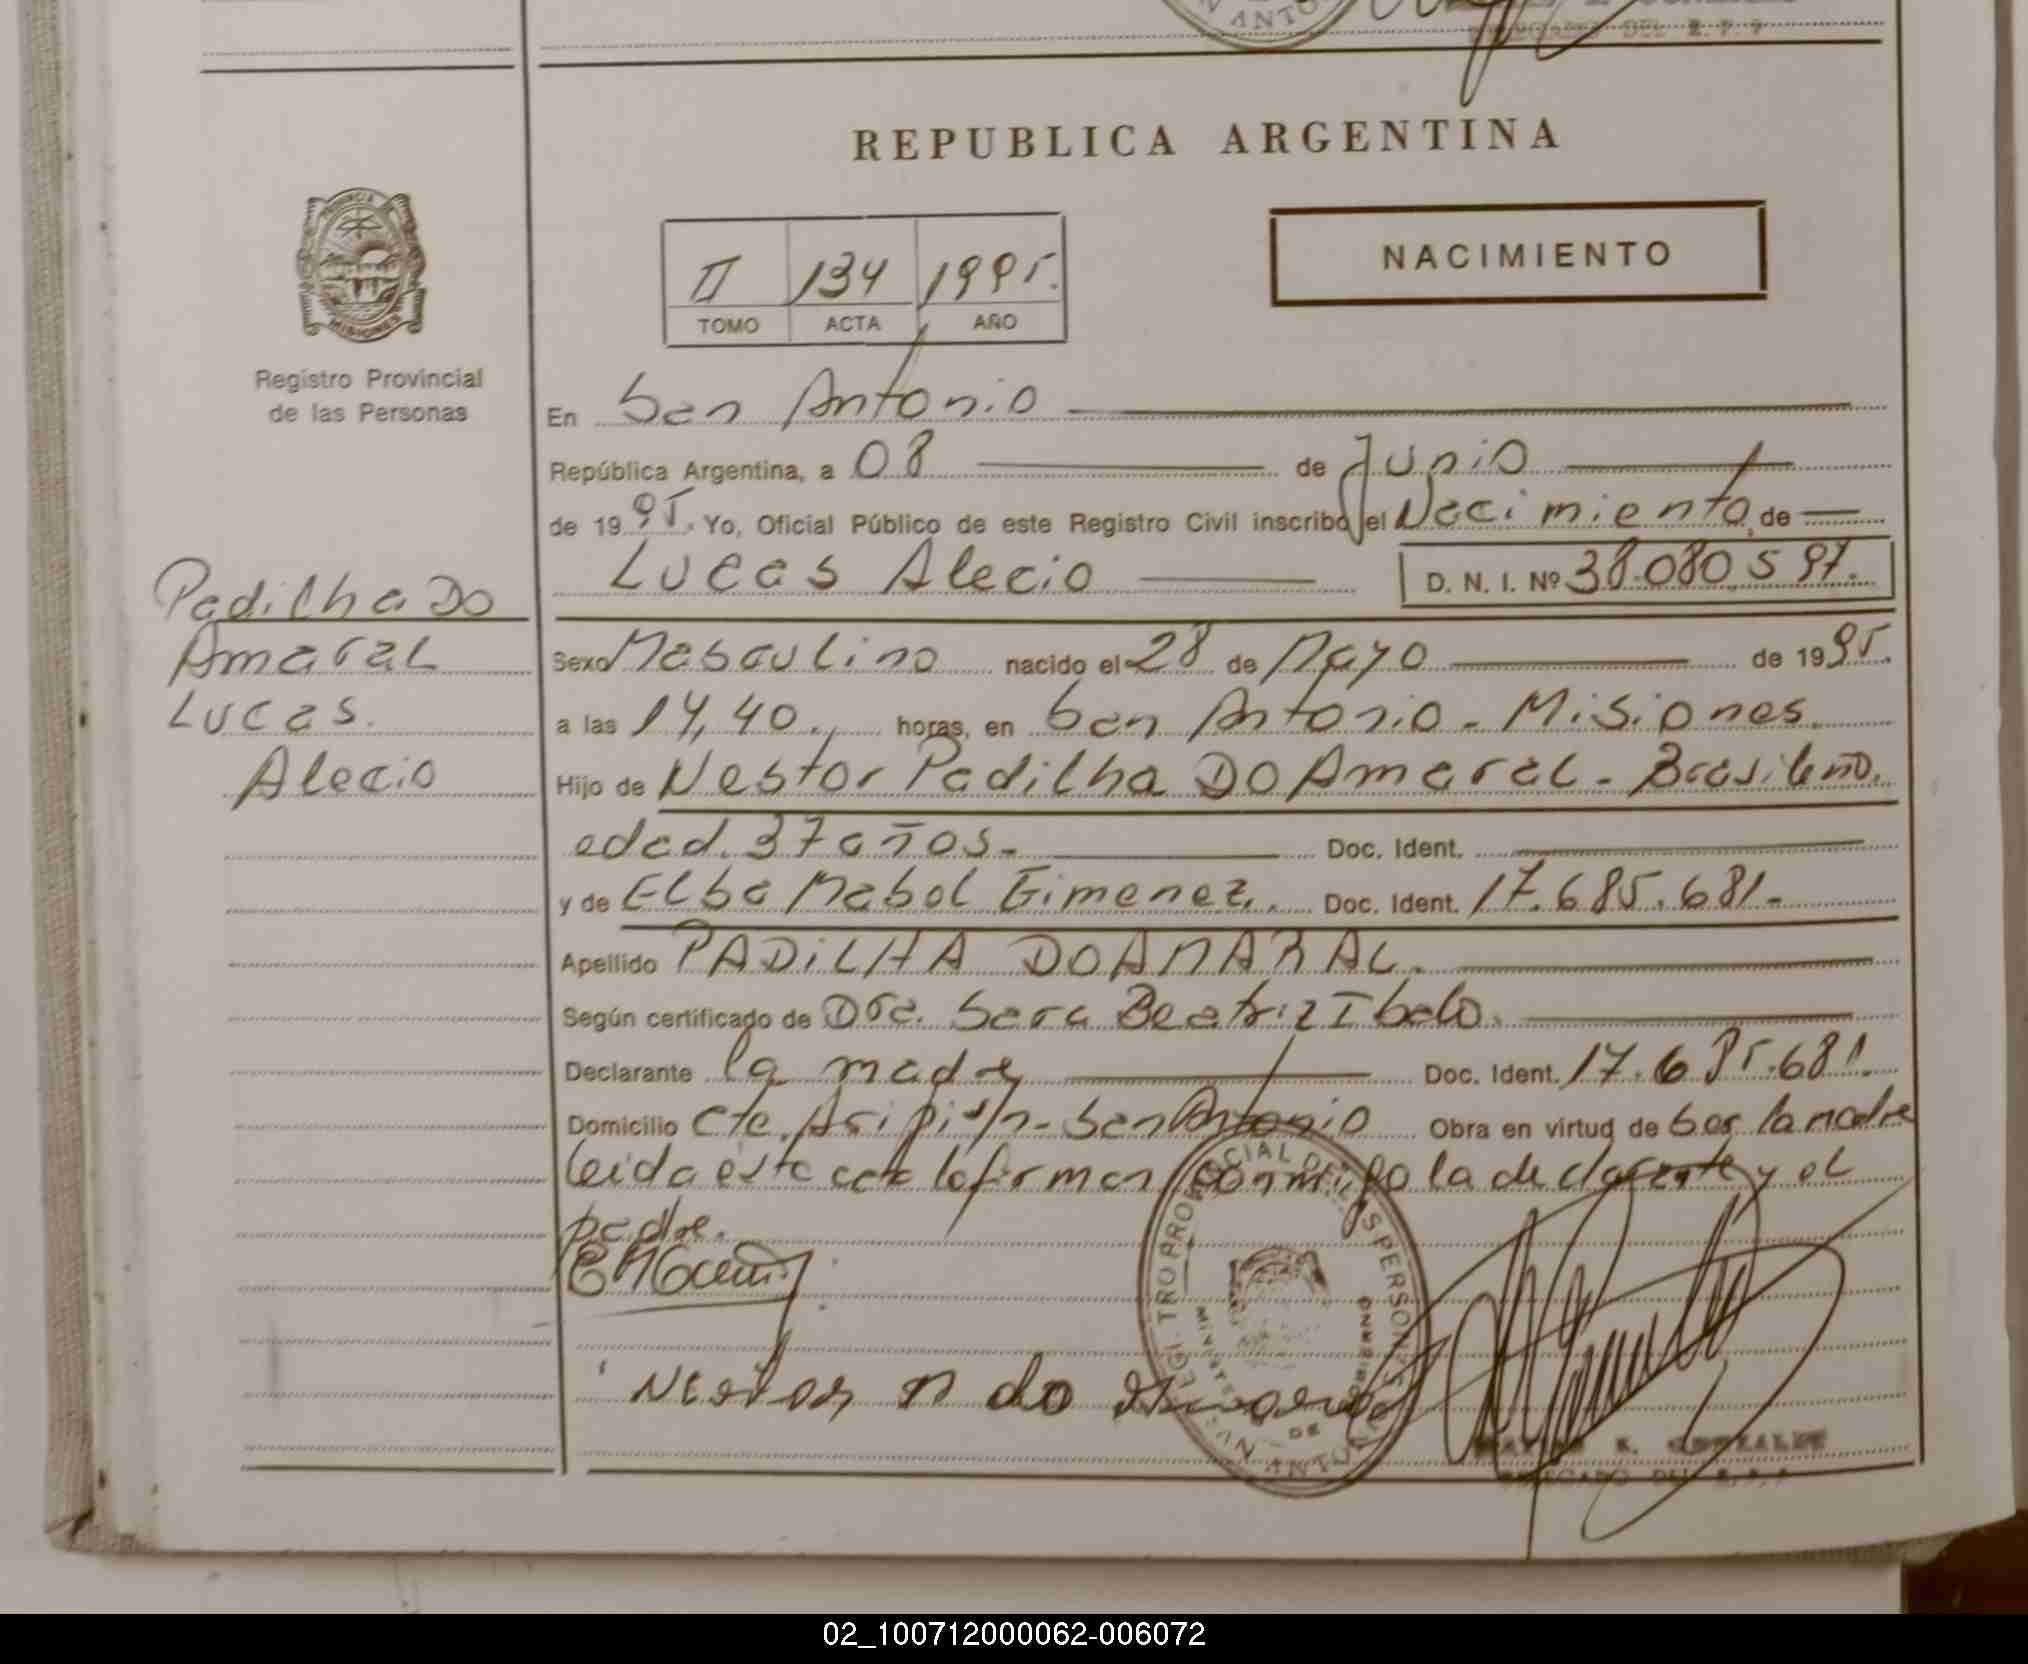 REPUBLICA ARGENTINA
PROVINCIA
MISIONES
Registro Provincial
de las Personas
NACIMIENTO
II 134 1995.
TOMO ACTA AÑO
En San Antonio
República Argentina, a 08 de Junio
de 1995. Yo, Oficial Público de este Registro Civil inscribo el Nacimiento de
Lucas Alecio D. N. I. Nº 38.080.597.
Padilha Do
Amaral
Lucas.
Alecio
Sexo Masculino nacido el 28 de Mayo de 1995.
a las 14,40., horas, en San Antonio - Misiones.
Hijo de Nestor Padilha Do Amaral - Brasileño.
edad. 37 años.- Doc. Ident.
y de Elba Mabel Gimenez. Doc. Ident. 17.685.681.-
Apellido PADILHA DO AMARAL.
Según certificado de Dra. Sara Beatriz
Declarante la madre Doc. Ident. 17.685.681.
Domicilio Cte. s/n - San Antonio Obra en virtud de ser la madre
leida esta acta la firman conmigo la declarante y el
padre.
Nestor P do Amaral
DELEGADO DEL R.P.P
02_100712000062-006072